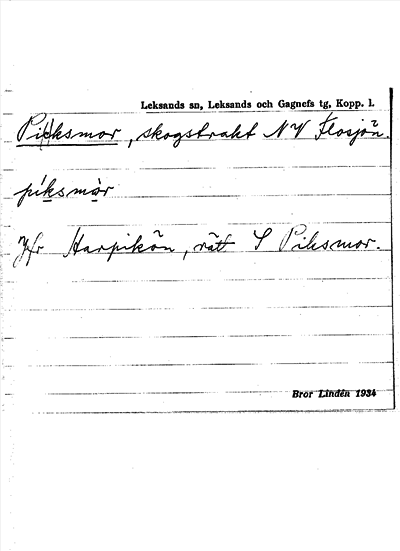 Leksands sn, Leksands och Gagnefs tg, Kopp. l.
Piksmor, skogstrakt NV Flosjön.
píksmàr
Jfr Harpikån, rätt S Piksmor.
Bror Lindén 1934